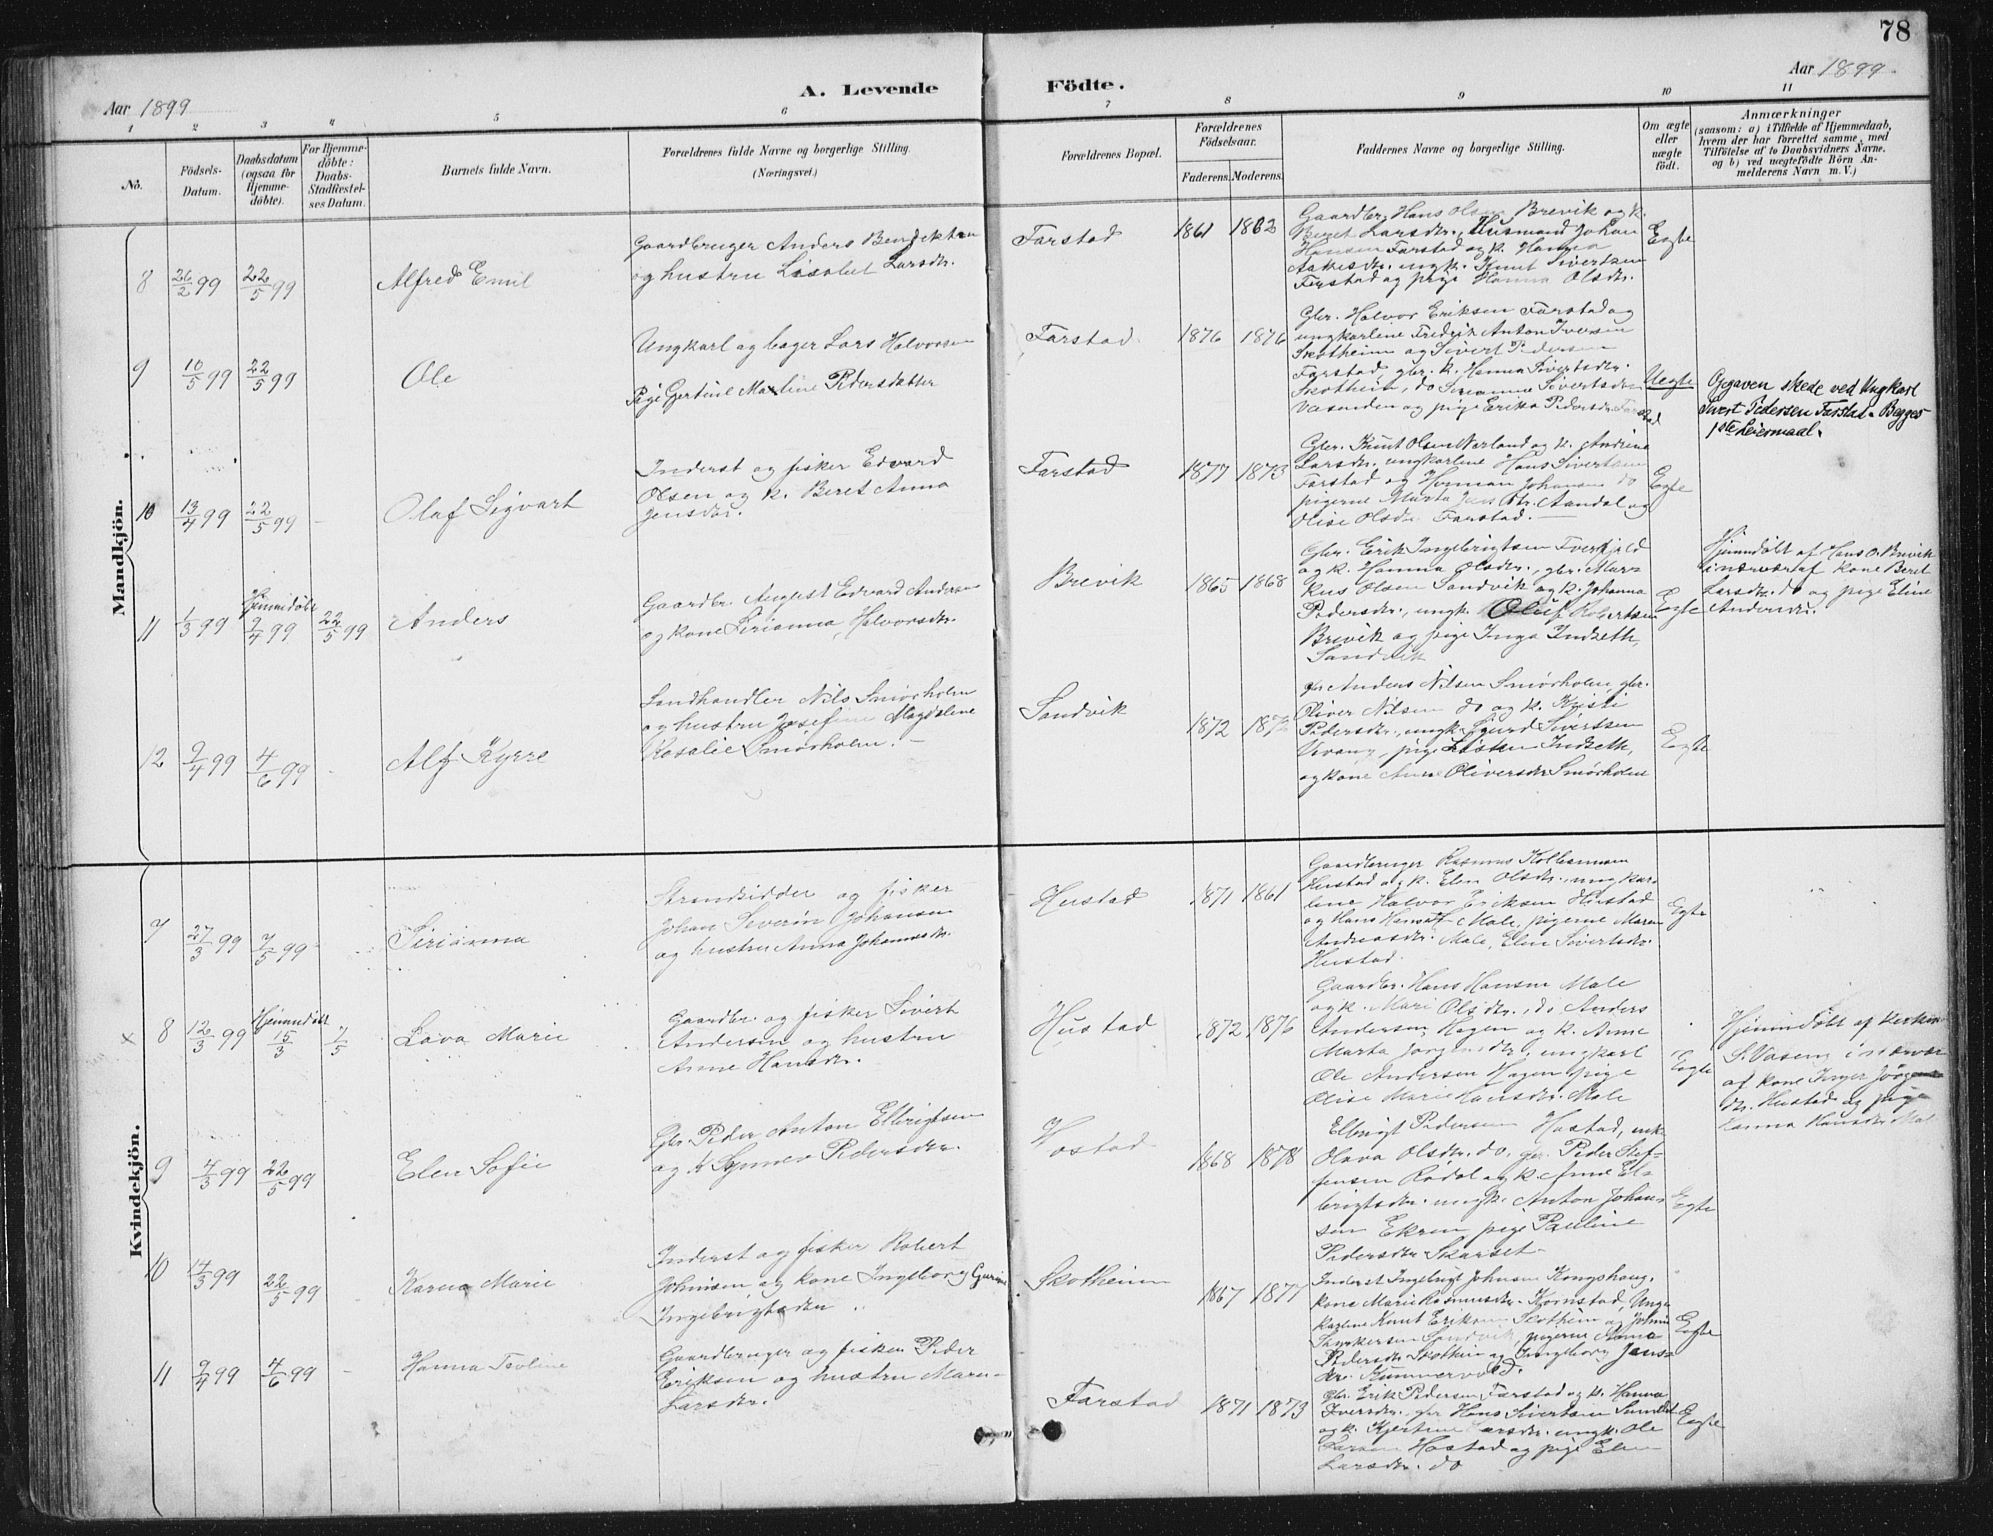 78
Aar 1899
A. Levende
Födte.
Aar 1899.
1 2 3 4 5 6 7 8 9 10 11
No.
Födsels-
Datum.
Daabsdatum
(ogsaa for
Hjemme-
döbte).
For Hjemme-
döbte:
Daabs-
Stadfæstel-
ses Datum.
Barnets fulde Navn.
Forældrenes fulde Navne og borgerlige Stilling.
(Næringsvei.)
Forældrenes Bopæl.
Forældrenes
Födselsaar.
Faderens. Moderens.
Faddernes Navne og borgerlige Stilling.
Om ægte
eller
uægte
födt.
Anmærkninger
(saasom: a) i Tilfælde af Hjemmedaab,
hvem der har forrettet samme, med
Tilföielse af to Daabsvidners Navne,
og b) ved uægtefödte Börn An-
melderens Navn m. V.)
Mandkjön.
8 26/2 99 22/5 99 Alfred Emil
Gaardbruger Anders Bendiktsen
og hustru Lisabet Larsdtr.
Farstad 1861 1862
Gaardbr. Hans Olsen Brevik og k.
Beret Larsdtr., Husmand Johan
Hansen Farstad og k. Hanna
ungk. Knut Sivertsen
Farstad og pige Hanna Olsdtr.
Egte
9 10/5 99 22/5 99 Ole
Ungkarl og bager Lars Halvorsen
Pige Gertine Marline Pedersdatter
Farstad 1876 1876
Gbr. Halvor Eriksen Farstad og
ungkarlene Fredrik Anton Iversen
Skotheim og Sivert Pedersen
Farstad, gbr. k. Hanna Sivertsdtr.
Skotheim, do Sivertsdtr.
Vasenden og pige Erika Pedersdtr. Farstad
Uegte
Opgaven skede ved Ungkarl
Sivert Pedersen Farstad. Begges
1ste Leiermaal.
10 13/4 99 22/5 99 - Olaf Sigvart
Inderst og fisker Edvard
Olsen og k. Beret Anna
Jensdtr.
Farstad 1877 1873
Gbr. Knut Olsen Narland og k. Andrine
Larsdtr. ungkarlene Hans Sivertsen
Farstad og Herman Johansen do
pigerne Marta Aandal og
Olise Olsdtr. Farstad. —
Egte
11 1/3 99 Hjemmedöbt 9/4 99 22/5 99 Anders
Gaardbr. August Edvard Andersen
og kone Sirianna Halvorsdtr.
Brevik 1865 1868
Gbr. Erik Ingebrigtsen Tverfjeld
og k. Hanna Olsdtr., gbr. Mar-
kus Olsen Sandvik og k. Johanna
Pedersdtr., ungk. Oluf Robertsen
Brevik og pige Inga Indseth,
Sandvik
Egte
Hjemmdöbt af Hans O. Brevik
i nærvær af kone Beret
Larsdtr. do og pige Eline
Andersdtr.
12 9/4 99 4/6 99 - Alf Kyrre
Landhandler Nils Smörholm
og hustru Josefine Magdalene
Rosalie Smörholm. —
Sandvik 1872 1872
gbr Anders Nilsen Smörholm, gbr.
Oliver Nilsen do og k. Kristi
Pedersdtr., ungk. Sigurd Sivertsen
pige Indseth,
og kone Anne Oliversdtr Smörholm
Egte
Kvindekjön.
7 27/3 99 7/5 99 Sirianna
Strandsidder og fisker
Johan Severin Johansen
og hustru Anna Johannesdtr.
Hustad 1871 1861
Gaardbruger Rasmus Kolbeinsen
Hustad og k. Elen Olsdtr., ungkar-
lene Halvor Eriksen Hustad
og Hans Male, pigerne Maren
Andreasdtr. Male, Elen Sivertsdtr.
Hustad.
Egte
x 8 12/3 99 Hjemmdöbt 15/3 7/5 Lova Marie
Gaardbr. og fisker Sivert
Andersen og hustru
Anne Hansdtr.
Hustad 1872 1876
Gaardbr. Hans Hansen Male
og k. Mari Olsdtr., do Anders
Andersen Hagen og k. Anne
Marta Jörgensdtr., ungkarl
Ole Andersen Hagen pige
Olise Marie Hansdtr. Male
Egte
Hjemmdöbt af
S. Vaseng i nærvær
af kone Inger
dtr. Hustad og pige
Hanna Hansdtr Male
9 4/3 99 22/5 99 Elen Sofie
Gbr. Peder Anton Ellingsen
og k Synnev Pedersdtr.
Hostad 1868 1878
Pedersen Hostad, enke
Olava Olsdtr. do, gbr. Peder Stef-
fensen Rödal og k. Anne El-
brigtsdtr. ungk. Anton Johan-
sen Ekren pige Pauline
Pedersdtr Skarset-
Egte
10 14/3 99 22/5 99 Karen Marie
Inderst og fisker Robert
Johnsen og kone Ingeborg Gurine
Ingebrigtsdtr
Skotheim 1867 1877
Inderst Ingebrigt Johnsen Kongshaug,
kone Marie Rasmusdtr. Kornstad, Ung-
karlene Knut Eriksen Skotheim og
Sandvik, pigerne Anna
Pedersdtr Skotheim og Ingeborg Jens-
dtr.
Egte
11 9/4 99 4/6 99 - Hanna Tovline
Gaardbruger og fisker Peder
Eriksen og hustru Maren
Larsdtr.
Farstad 1871 1873
Gbr. Erik Pedersen Farstad og k. Hanna
Iversdtr., gbr Hans Sivertsen
og k. Kjerstine Larsdtr. ungk. Ole
Larsen Hostad og pige Elen
Larsdtr. do
Egte